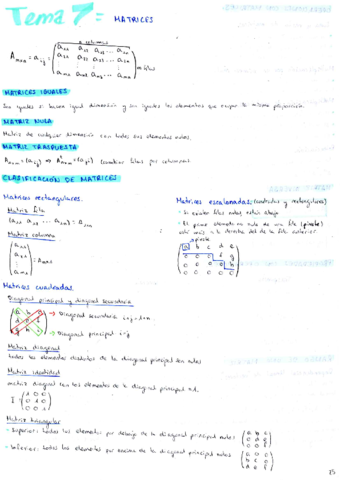 Tema 7= MATRICES
n columnas
Amxn = aij = (a11 a12 a13 ... a1n
a21 a22 a23 ... a2n
am1 am2 am3 ... amn) m filas
MATRICES IGUALES
Son iguales si tienen igual dimensión y son iguales los elementos que ocupan la misma posición.
MATRIZ NULA
Matriz de cualquier dimensión con todos sus elementos nulos.
MATRIZ TRASPUESTA
Amxn = (aij) ⇒ Atnxm = (aji) (cambiar filas por columnas)
CLASIFICACIÓN DE MATRICES
Matrices rectangulares.
Matriz fila
(a11 a12 ... a1n) = A1xn
Matriz columna
(a11
a21
am1) = Amx1
Matrices escalonadas: (cuadradas y rectangulares)
- Si existen filas nulas están abajo
- El primer elemento no nulo de una fila (pivote)
está más a la derecha del de la fila anterior
pivote
a b c d e
0 0 0 f g
0 0 0 0 h
Matrices cuadradas.
Diagonal principal y diagonal secundaria
a b c
d e f
g h i
→ Diagonal secundaria i+j=n+1
→ Diagonal principal i=j
Matriz diagonal
todos los elementos distintos de la diagonal principal son nulos
Matriz identidad
matriz diagonal con los elementos de la diagonal principal a 1.
I = (1 0 0
0 1 0
0 0 1)
Matriz triangular
· Superior: todos los elementos por debajo de la diagonal principal nulos (a b c
0 d e
0 0 f)
· Inferior: todos los elementos por encima de la diagonal principal nulos (a 0 0
b c 0
d e f)